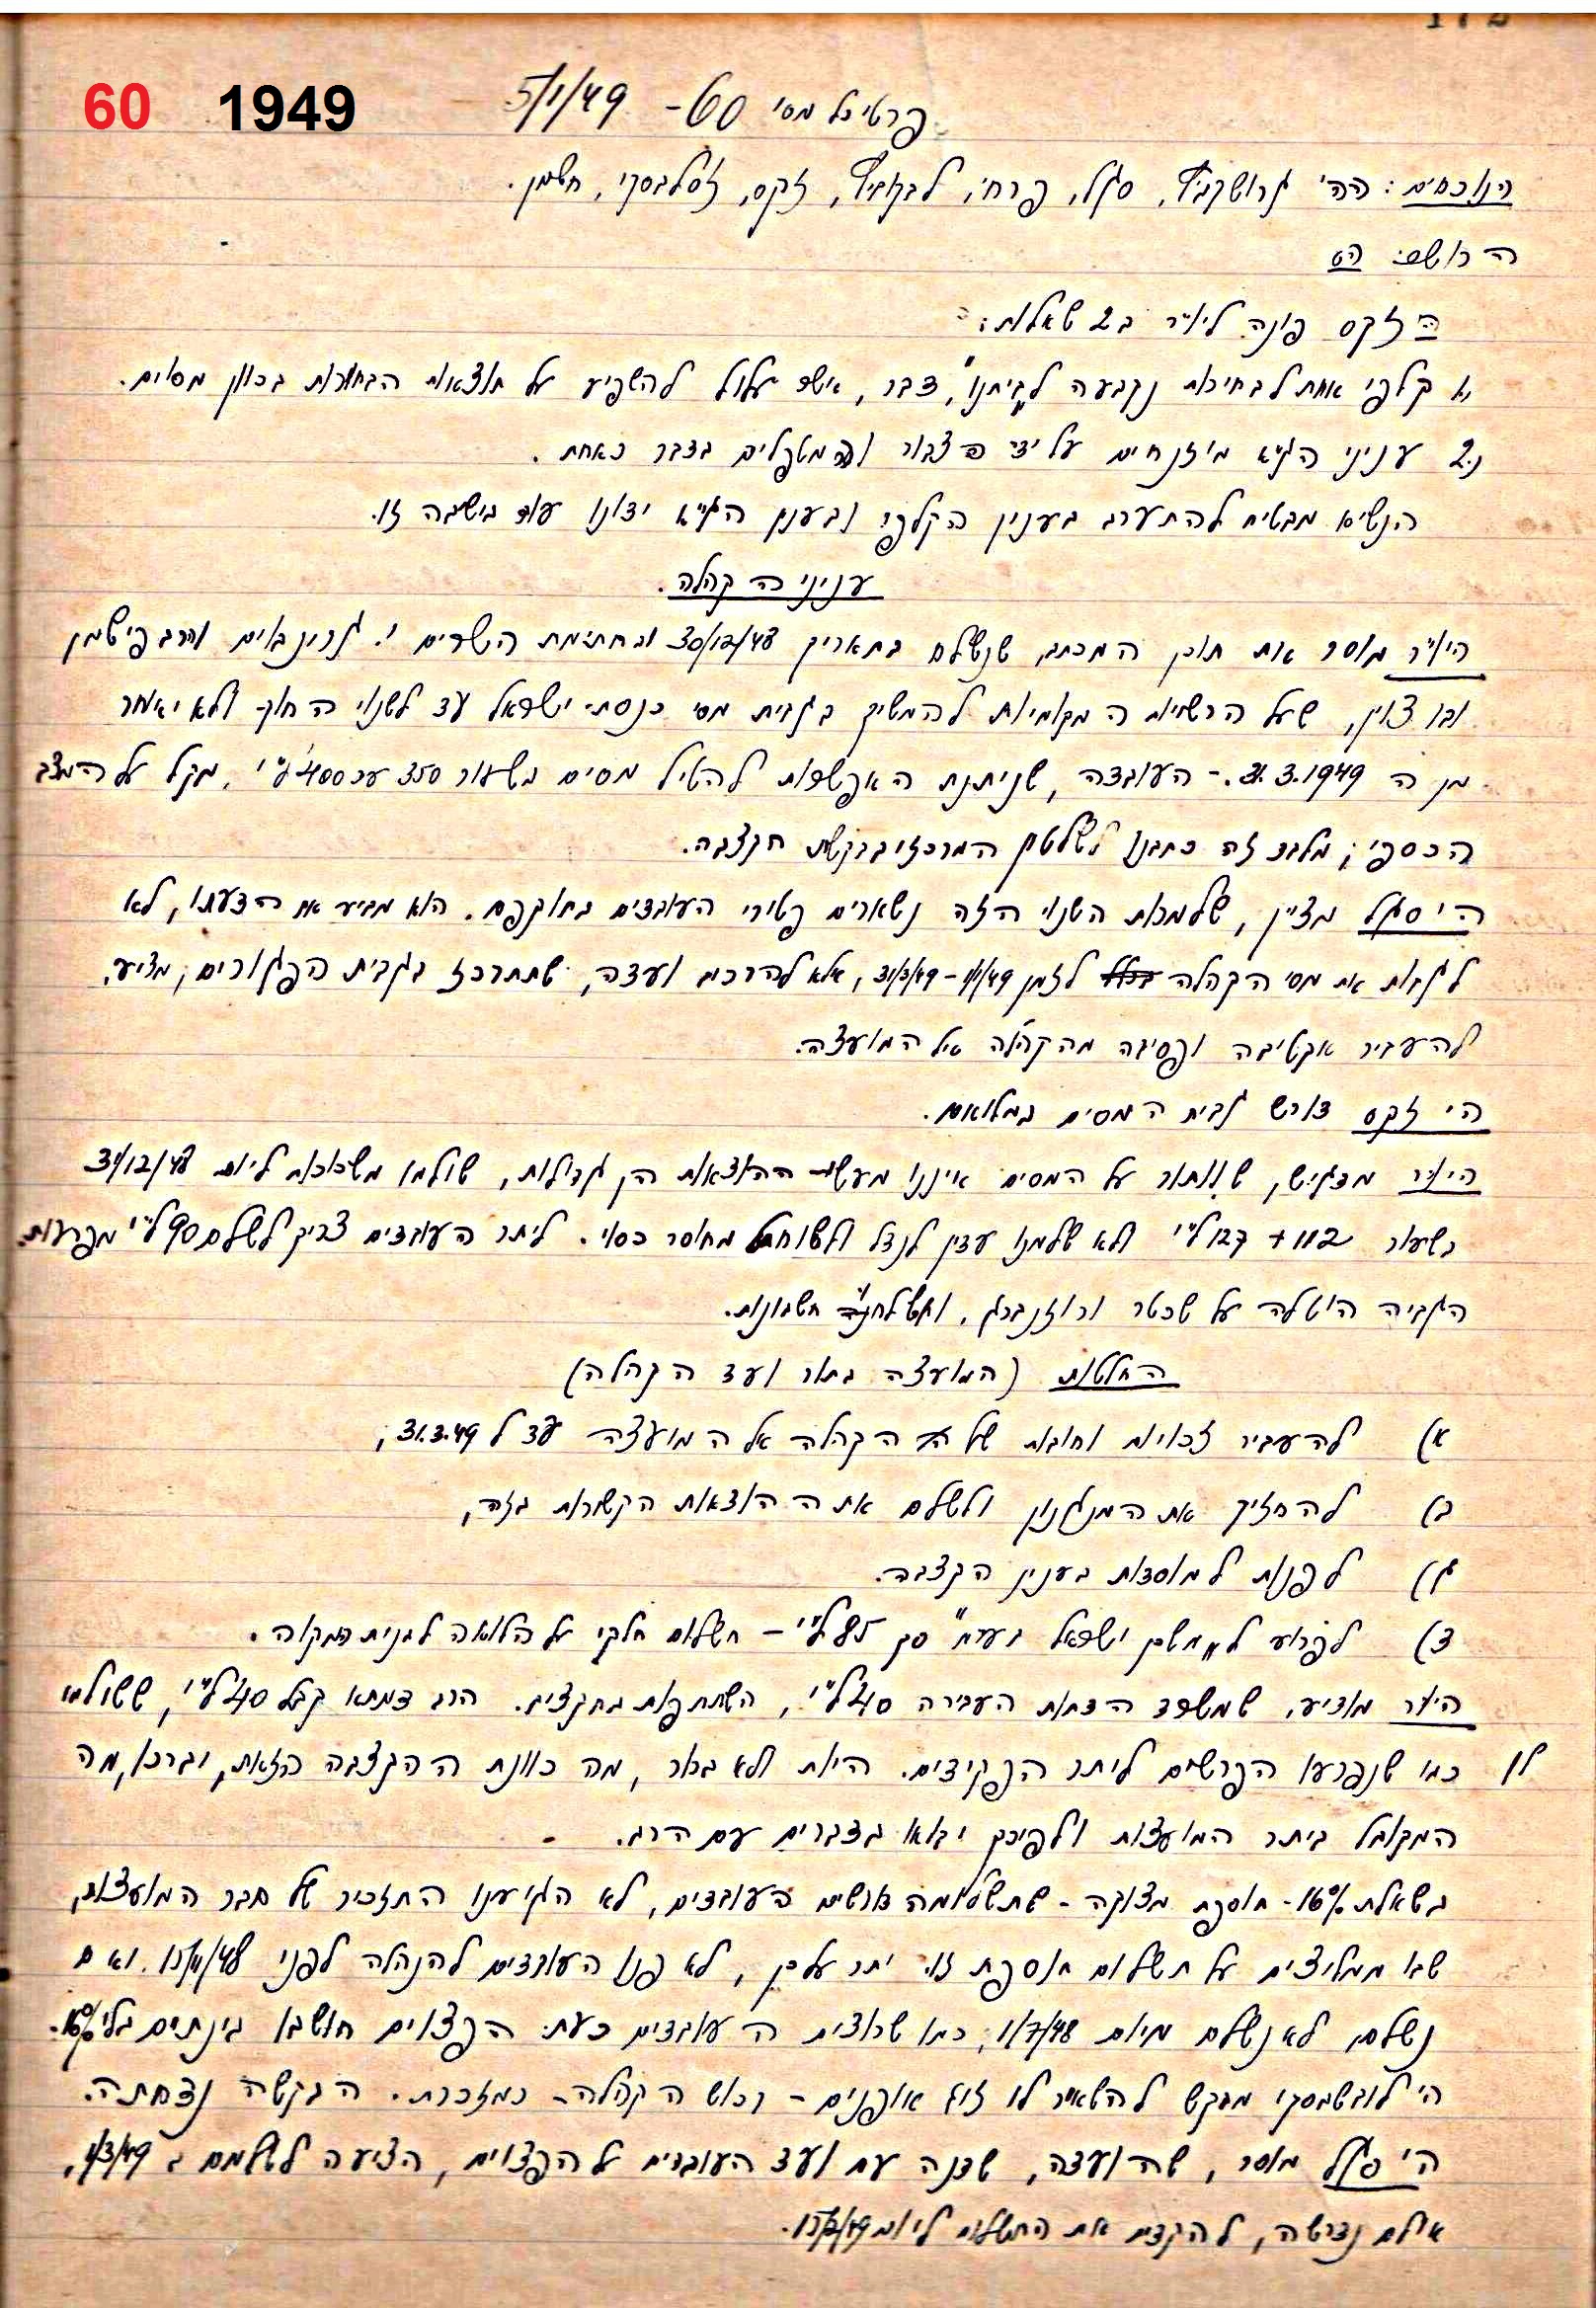 172
60 1949
פרטיכל מסי 60 - 5/1/49
הנוכחים: הה' גרושקביץ, סגל, פרחי, לבקוביץ, זקס, זסלבסקי, חשמן.
הרושם: הט
ה' זקס פונה ליו"ר ב 2 שאלות:
1. קלפי אחת לבחירות נקבעה ל"ביתנו", דבר, אשר עלול להשפיע על תוצאות הבחירות בכוון מסוים.
2. עניני הג"א מוזנחים על ידי הצבור והמטפלים בדבר כאחת.
הנשיא מבטיח להתערב בענין הקלפי ובענין הג"א ידונו עוד בישיבה זו.
עניני הקהלה.
היו"ר מוסר את תוכן המכתב, שנשלח בתאריך 30/12/48 ובחתימת השרים י. גרינבאום והרב פישמן
ובו צוין, שעל הרשויות המקומיות להמשיך בגבית מסי כנסת ישראל עד לשנוי החוק ולא יאוחר
מן ה 31.3.1949. - העובדה, שניתנת האפשרות להטיל מסים בשעור 350 עד 400 ל"י, מקל על המצב
הכספי; מלבד זה כתבנו לשלטון המרכזי בבקשת הקצבה.
ה' סגל מציין, שלמרות השנוי הזה נשארים פטורי העובדים בתוקפם. הוא מביע את הדעתו, לא
לגבות את מסי הקהלה לזמן 1/1/49 - 31/3/49, אלא להרכיב ועדה, שתתרכז בגבית הפגורים; מציע,
להעביר אקטיבה ופסיבה מהקהלה אל המועצה.
ה' זקס דורש גבית המסים במלואם.
היו"ר מדגיש, שוותור על המסים איננו מעשי. ההוצאות הן גדולות, שולמו משכורות ליום 31/12/48
בשיעור 112 + 127 ל"י ולא שלמנו עדין לנדל ולשוחט מחוסר כסף. ליתר העובדים צריך לשלם 90 ל"י מפרעות.
הגביה הוטלה על שכטר ורוזנברג, ותשלחנה חשבונות.
החלטות (המועצה בתור ועד הקהלה)
א) להעביר זכויות וחובות של הקהלה אל המועצה עד ל 31.3.49,
ב) להחזיק את המנגנון ולשלם את ההוצאות הקשורות בזה,
ג) לפנות למוסדות בענין הקצבה.
ד) לפרוע ל"משכן ישראל בע"מ" סך 85 ל"י - תשלום חלקי על הלואה לבנית המקוה.
היו"ר מודיע, שמשרד הדתות העבירה 40 ל"י, השתתפות בתקציב. הרב דמתא קבל 40 ל"י, ששולמו
לו כמו שנפרעו הפרשים ליתר הפקידים. היות ולא ברור, מה כוונת ההקצבה הזאת, ומה
המקובל ביתר המועצות ולפיכך יבוא בדברים עם הרב.
בשאלת 16% - תוספת מצוקה - שתשלומה דורשים העובדים, לא הגיענו התזכיר של חבר המועצות,
שבו ממליצים על תשלום תוספת זו. יתר על כן, לא פנו העובדים להנהלה לפני 15/11/48. ואם
נשלם, לא נשלם מיום 1/7/48, כמו שרוצים העובדים כעת. הפצוים חושבו בינתים בלי 16%.
ה' לובשבסקי מבקש להשאיר לו זוג אופנים - רכוש הקהלה - כמזכרת. הבקשה נדחתה.
ה' סגל מוסר, שהועדה, שדנה עם ועד העובדים על הפצוים, הציעה לשלמם ב 1/3/49,
אולם נדרשה, להקדים את התשלום ליום 15/2/49.